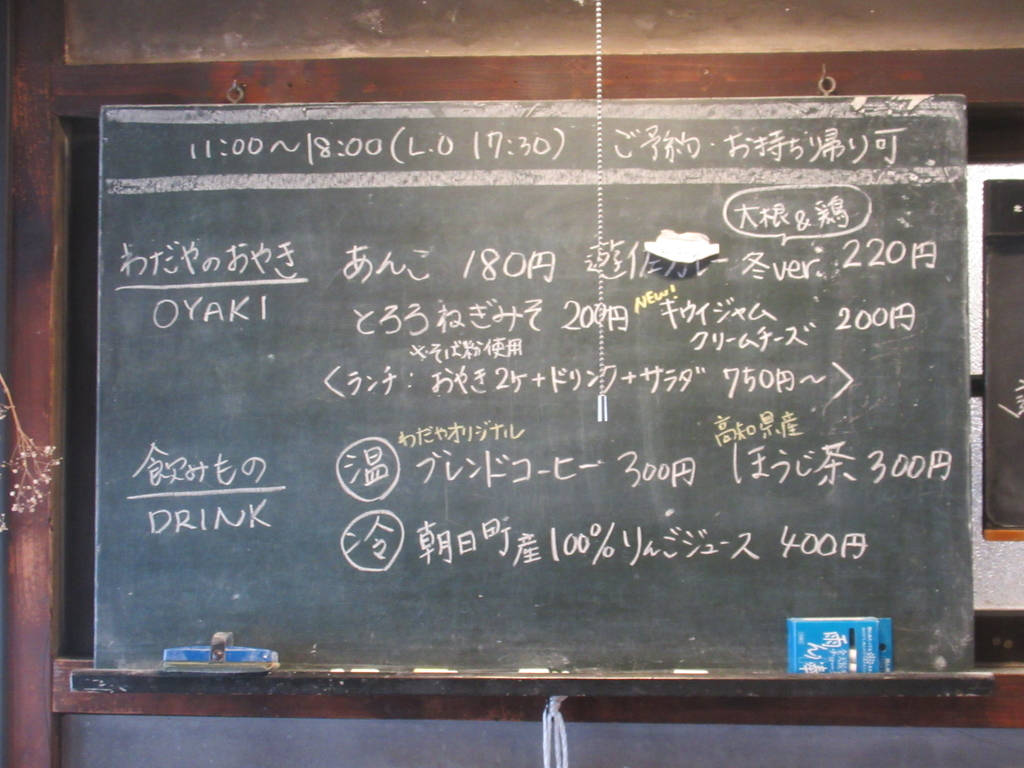 11:00～18:00(L.O 17:30) ご予約・お持ち帰り可
大根&鶏
わだやのおやき あんこ 180円 遊佐カレー 冬ver. 220円
OYAKI
とろろねぎみそ 200円 NEW! キウイジャム クリームチーズ 200円
※そば粉使用
〈ランチ：おやき2ケ+ドリンク+サラダ 750円～〉
わだやオリジナル 高知県産
飲みもの 温 ブレンドコーヒー 300円 ほうじ茶 300円
DRINK
冷 朝日町産100%りんごジュース 400円